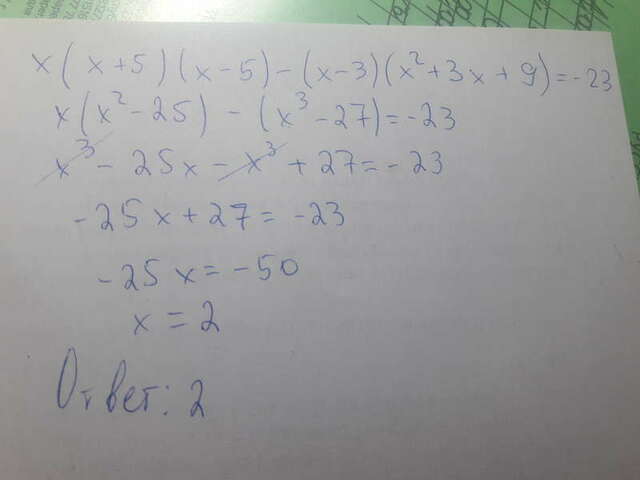 x(x+5)(x-5)-(x-3)(x²+3x+9)=-23
x(x²-25)-(x³-27)=-23
x³-25x-x³+27=-23
-25x+27=-23
-25x=-50
x=2
Ответ: 2